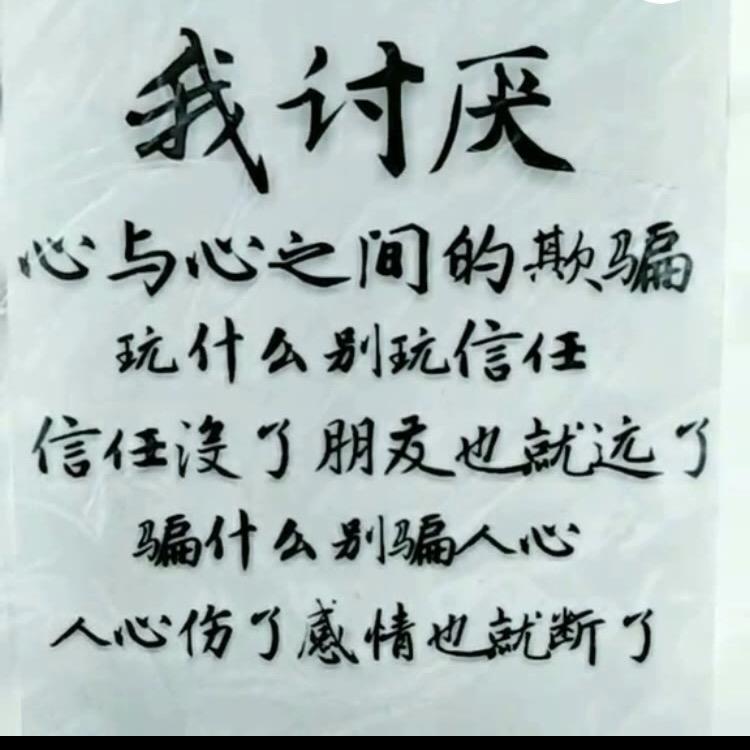 我讨厌
心与心之间的欺骗
玩什么别玩信任
信任没了朋友也就远了
骗什么别骗人心
人心伤了感情也就断了